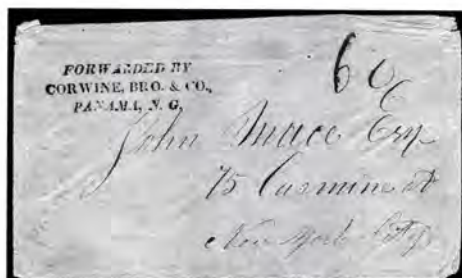 FORWARDED BY
CORWINE, BRO. & CO.,
PANAMA, N. G,
60
John Mace Esq
75 Carmine st
New York City